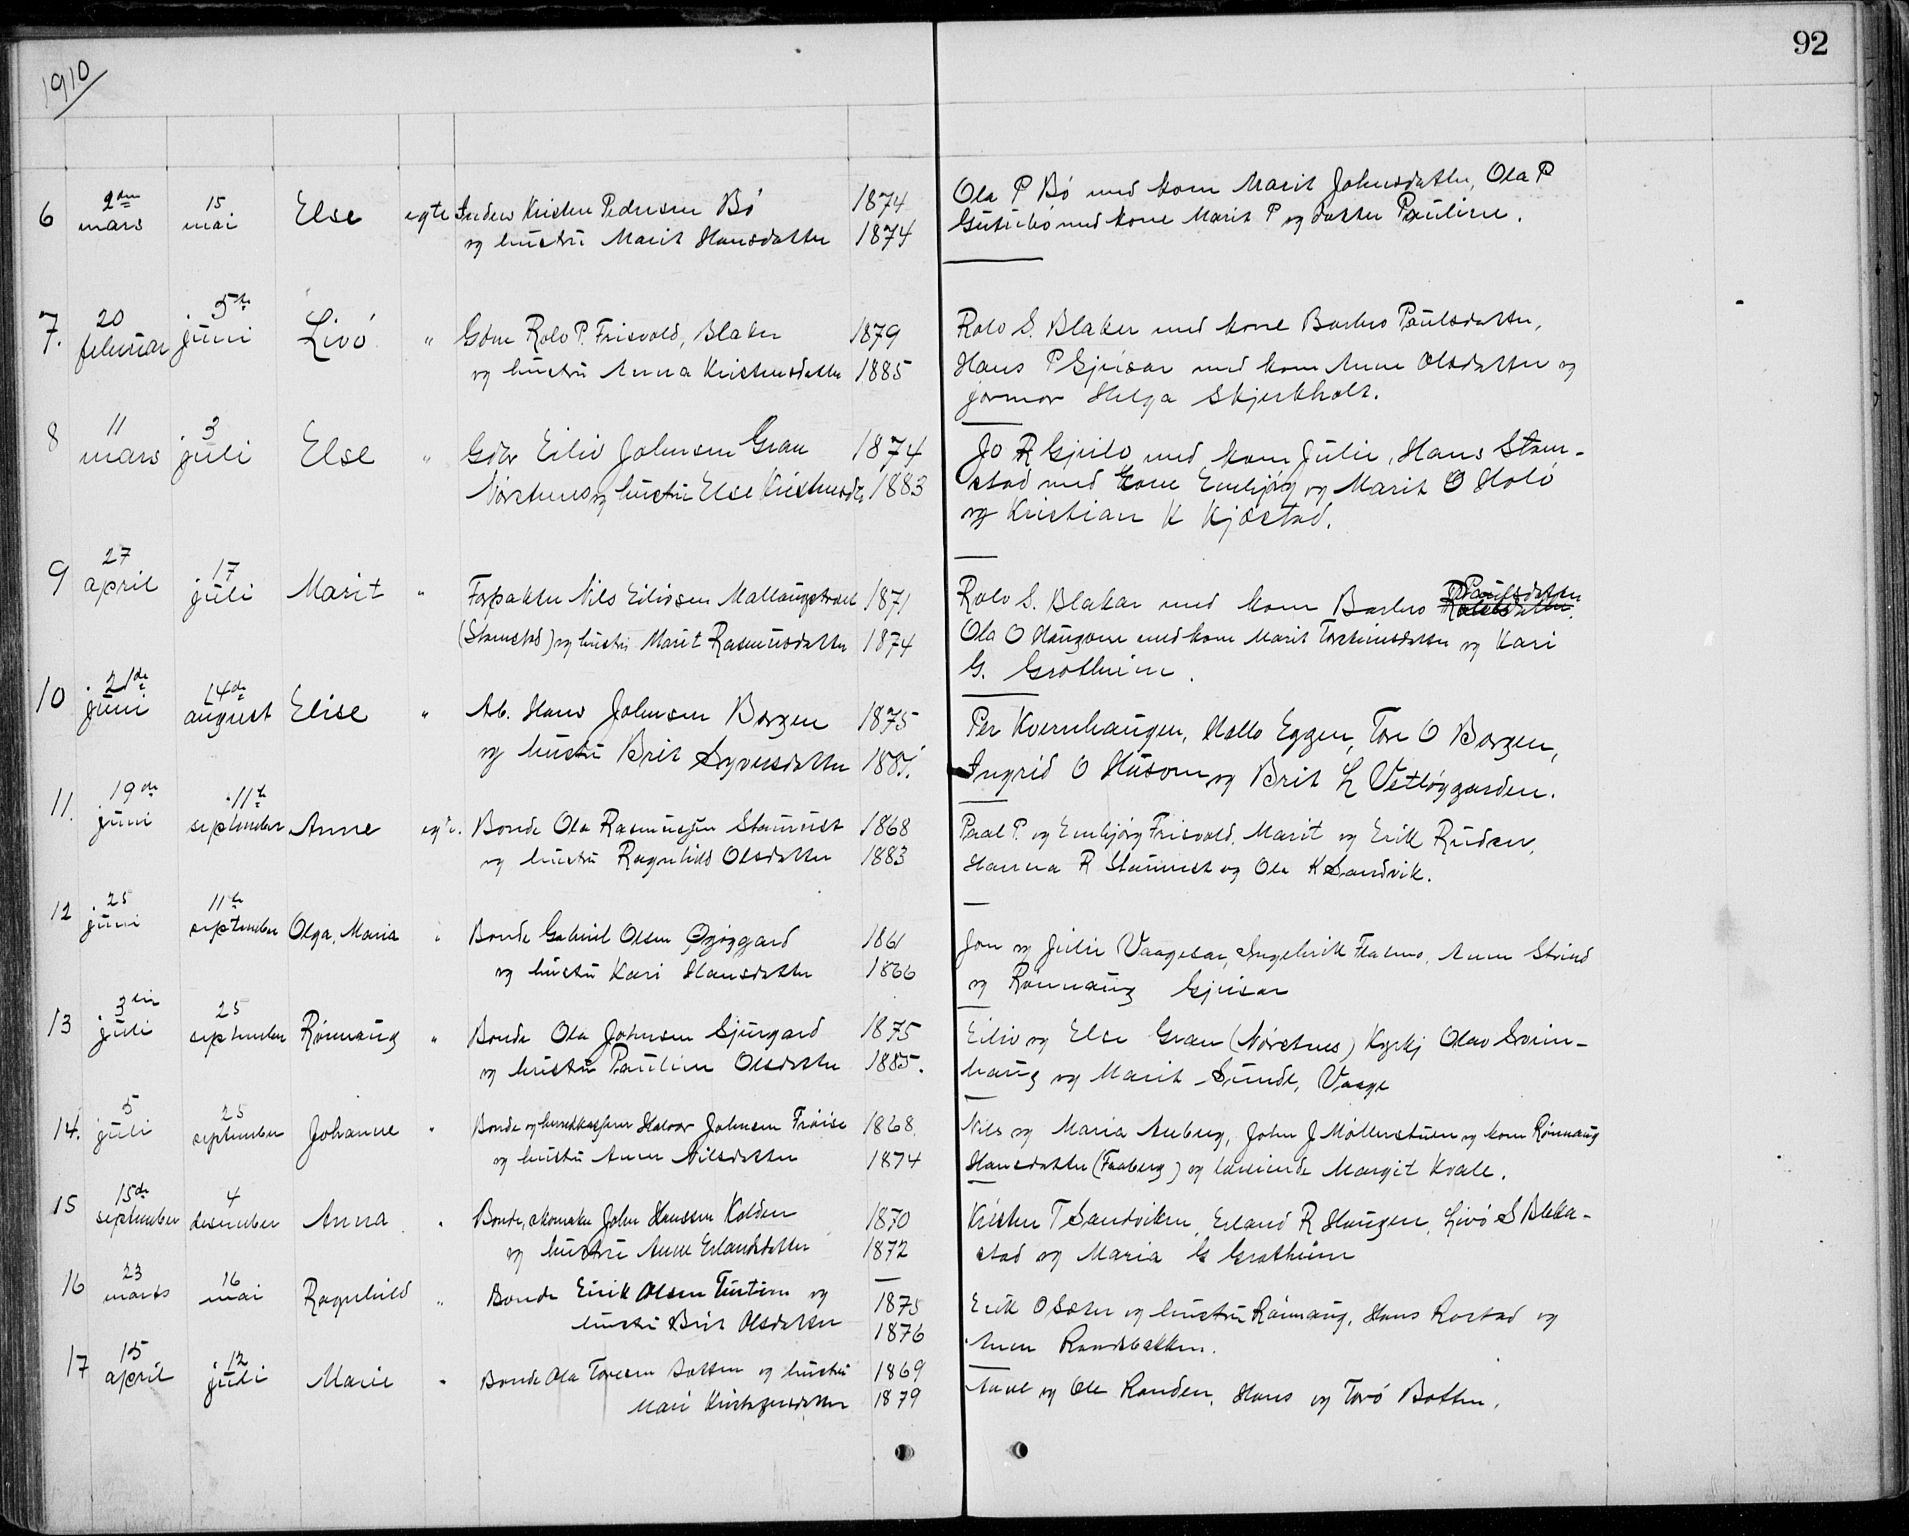 92
1910
6 2den mars 15 mai Else egte Kristen Pedersen Bø 1874
og hustru Marit Hansdatter 1874
Ola P Bø med kone Marit Johnsdatter, Ola P
med kone Marit P og datter Pauline.
7. 20 februar 5te juni Livø " Gdm Rolv P. Frisvold, Blaker 1879
og hustru Anna Kristensdatter 1885
Rolv S. Blaker med kone Barbro Paulsdatter,
Hans P Gjeisar med kone Anne Olsdatter og
jormor Helga Skjerkholt.
8 11 mars 3 juli Else " Gdbr Eiliv Johnsen Gran 1874
Nørstnes og hustru Else Kristensdtr 1883
Jo R Gjeilo med kone Julie, Hans Stam-
stad med kone Embjørg og Marit O Holø
og Kristian K Kjæstad.
9 27 april 17 juli Marit " Forpakter Nils Eilivsen Mallaugstrøet 1871
(Stamstad) og hustru Marit Rasmusdatter 1874
Rolv S. Blakar med kone Barbro Paulsdatter
Ola O Haugom med kone Marit Torsteinsdatter og Kari
G. Grotheim.
10 21de juni 14de august Elise " Ab. Hans Johnsen Borgen 1875
og hustru Brit Syversdatter 1881.
Per Kvernhaugen, Mallo Eggen, Tore O Borgen,
Ingrid O Husom og Brit L Vetløygarden.
11. 19de juni 11te september Anne egte. Bonde Ola Rasmussen Staurust 1868
og hustru Ragnhild Olsdatter 1883
Paal P. og Embjørg Frisvold, Marit og Erik Ruden,
Hanna R Staurust og Ola K Sandvik.
12 25 juni 11te september Olga, Maria " Bonde Gabriel Olsen Øygard 1861
og hustru Kari Hansdatter 1866
Jon og Julie Vaagesar, Ingebrik Flatmo, Anne Strind
og Rønnaug Gjeisar
13 3die juli 25 september Rønnaug " Bonde Ola Johnsen Sjurgard 1875
og hustru Pauline Olsdatter 1885.
Eiliv og Else Gran (Nørstnes) Kyrkj Olav Svein-
haug og Marit Sunde, Vaage
14. 5 juli 25 september Johanne " Bonde og herredkasserer Halvor Johnsen Frøise 1868
og hustru Anne Nilsdatter 1874
Nils og Maria Auberg, John J Møllerstuen og kone Rønnaug
Hansdatter (Faaberg) og lærerinde Margit Kvale.
15 15de september 4 desember Anna " Bonde, skomaker John Hanssen Kolden 1870
og hustru Anne Erlandsdatter 1872
Kristen T Sandviken, Erland R Haugen, Livø S Bleka-
stad og Maria G Grotheim
16 23 marts 16 mai Ragnhild " Bonde Eirik Olsen og 1875
hustru Brit Olsdatter 1876
Erik O Sæter og hustru Rønnaug, Hans Rostad og
Anne Randsbakken.
17 15 april 12 juli Marie " Bonde Ola Toresen Botten og hustru 1869
Mari Kristofersdatter 1879
og Ole Randen, Hans og Torø Botten.